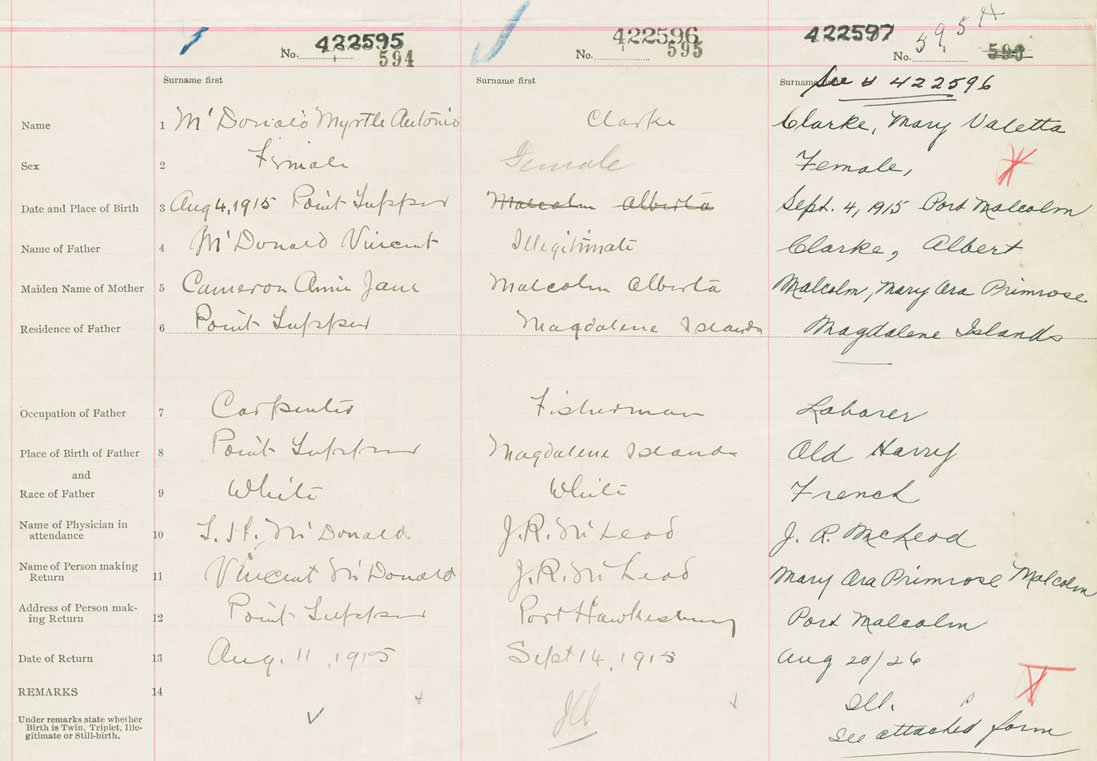 422595 422596 422597 595A
No. 594 No. 595 No. 590
Surname first Surname first Surname See # 422596
Name 1 McDonald Myrtle Antonio Clarke Clarke, Mary Valetta
Sex 2 Female Female Female,
Date and Place of Birth 3 Aug 4, 1915 Point Tupper Malcolm Alberta Sept. 4, 1915 Port Malcolm
Name of Father 4 McDonald Vincent Illegitimate Clarke, Albert
Maiden Name of Mother 5 Cameron Annie Jane Malcolm Alberta Malcolm, Mary Ora Primrose
Residence of Father 6 Point Tupper Magdalene Islands Magdalene Islands
Occupation of Father 7 Carpenter Fisherman Laborer
Place of Birth of Father 8 Point Tupper Magdalene Islands Old Harry
and
Race of Father 9 White White French
Name of Physician in
attendance 10 McDonald J. R. McLeod J. R. McLeod
Name of Person making
Return 11 Vincent McDonald J. R. McLeod Mary Ora Primrose Malcolm
Address of Person mak-
ing Return 12 Point Tupper Port Hawkesbury Port Malcolm
Date of Return 13 Aug. 11, 1915 Sept 14, 1915 Aug 20/26
REMARKS 14 Ill Ill.
Under remarks state whether
Birth is Twin, Triplet, Ille-
gitimate or Still-birth.
See attached form